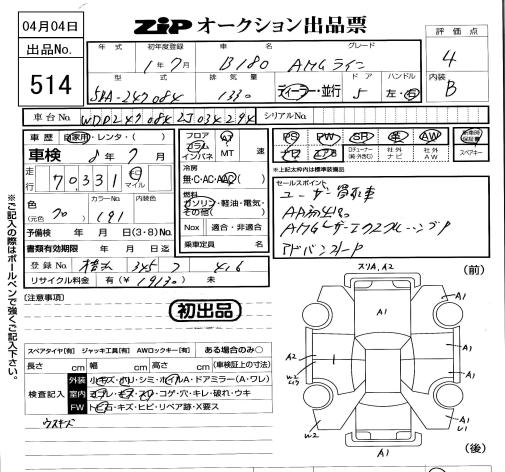 04月04日
ZIP オークション出品票
評価点
出品No.
514
年式 初年度登録 車名 グレード
1年7月 B180 AMGライン
4
型式 排気量 ドア ハンドル
内装
5BA-247084 1330 ディーラー・並行 5 左・右
B
車台No. WDD2470842J034294 シリアルNo.
車歴 自家用・レンタ・( )
フロア コラム インパネ AT MT 速
PS PW SR 革 AW
車検 8年7月
冷房
無・C・AC・AAC( )
走行 70,331 キロ マイル
燃料
ガソリン・軽油・電気・その他( )
※上記太枠内は標準装備品
色 カラーNo. 内装色
(元色) クロ 191
Nox 適合・非適合
予備検 年 月 日(3・8)No.
書類有効期限 年 月 日迄
乗車定員 名
登録No. 345 416
リサイクル料金 有(¥ ) 未
セールスポイント
ユーザー買取車
AP初出品
アドバンスP
(注意事項)
初出品
スペアタイヤ[有] ジャッキ工具[有] AWロックキー[有] ある場合のみ○
長さ cm 幅 cm 高さ cm (車検証上の寸法)
検査記入 外装 小キズ・ホリ・シミ・ホイルA・ドアミラー(A・ワレ)
室内 ヨゴレ・キズ・スリ・コゲ・穴・キレ・破れ・ウキ
FW トビ石・キズ・ヒビ・リペア跡・X要ス
ウスキズ
※ご記入の際はボールペンで強くご記入下さい。
スソA,A2
(前)
A1
A1
A1
A2
A1
W2
W2
A1
(後)
A1